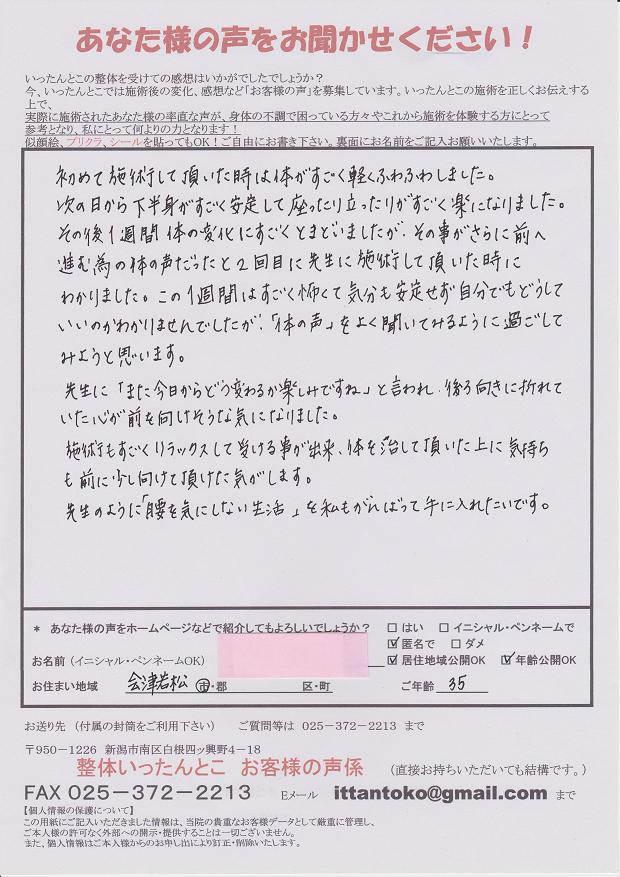 あなた様の声をお聞かせください！
いったんとこの整体を受けての感想はいかがでしたでしょうか？
今、いったんとこでは施術後の変化、感想など「お客様の声」を募集しています。いったんとこの施術を正しくお伝えする
上で、
実際に施術されたあなた様の率直な声が、身体の不調で困っている方々やこれから施術を体験する方にとって
参考となり、私にとって何よりの力となります！
似顔絵、プリクラ、シールを貼ってもOK！ご自由にお書き下さい。裏面にお名前をご記入お願いいたします。
初めて施術して頂いた時は体がすごく軽くふわふわしました。
次の日から下半身がすごく安定して座ったり立ったりがすごく楽になりました。
その後1週間体の変化にすごくとまどいましたが、その事がさらに前へ
進む為の体の声だったと2回目に先生に施術して頂いた時に
わかりました。この1週間はすごく怖くて気分も安定せず自分でもどうして
いいのかわかりませんでしたが、「体の声」をよく聞いてみるように過ごして
みようと思います。
先生に「また今日からどう変わるか楽しみですね」と言われ、後ろ向きに折れて
いた心が前を向けそうな気になりました。
施術もすごくリラックスして受ける事が出来、体を治して頂いた上に気持ち
も前に少し向けて頂けた気がします。
先生のように「腰を気にしない生活」を私もがんばって手に入れたいです。
＊ あなた様の声をホームページなどで紹介してもよろしいでしょうか？ □ はい □ イニシャル・ペンネームで
☑ 匿名で □ ダメ
お名前（イニシャル・ペンネームOK） ☑ 居住地域公開OK ☑ 年齢公開OK
お住まい地域 会津若松 市・郡 区・町 ご年齢 35
お送り先 （付属の封筒をご利用下さい） ご質問等は 025－372－2213 まで
〒950－1226 新潟市南区白根四ッ興野4－18
整体いったんとこ お客様の声係 （直接お持ちいただいても結構です。）
FAX 025－372－2213 Eメール ittantoko@gmail.com まで
【個人情報の保護について】
この用紙にご記入いただきました情報は、当院の貴重なお客様データとして厳重に管理し、
ご本人様の許可なく外部への開示・提供することは一切ございません。
また、個人情報はご本人様からのお申し出により訂正・削除いたします。